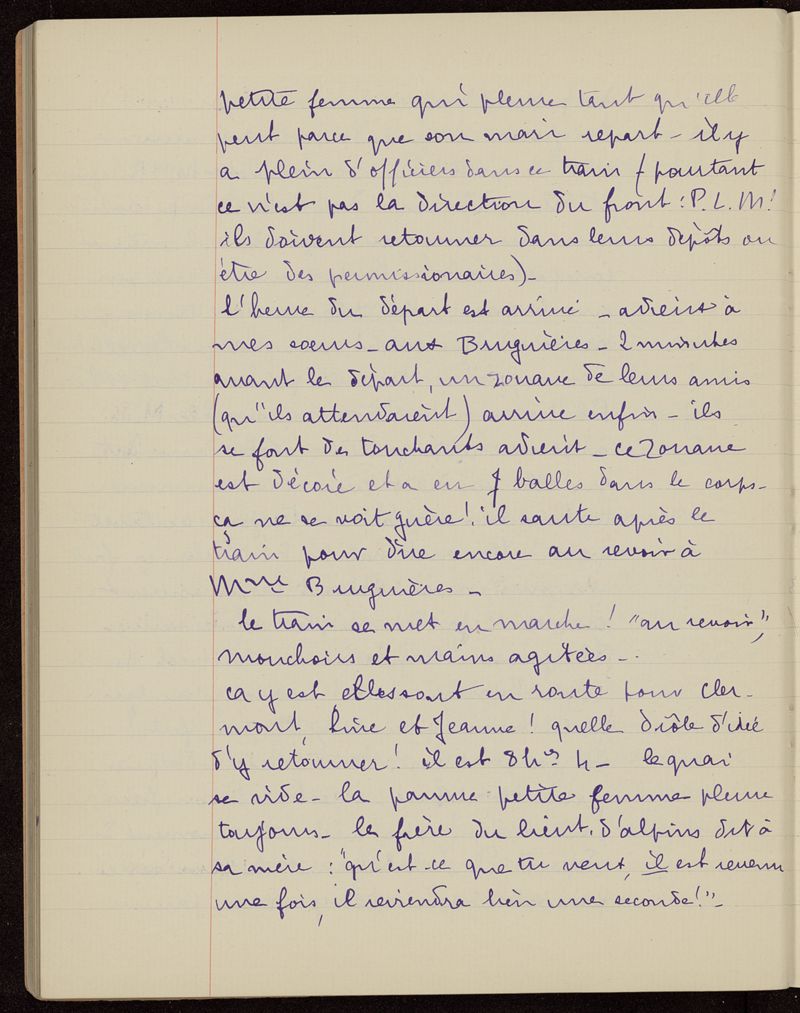 petite femme qui pleure tant qu'elle
peut parce que son mari repart - il y
a plein d'officiers dans ce train (pourtant
ce n'est pas la direction du front : P.L.M!
ils doivent retourner dans leurs depôts ou
être des permissionaires) -
l'heure du départ est arrivé - adieux à
mes soeurs - aux Bruguières - 2 minutes
avant le départ, un zouave de leurs amis
(qu'ils attendaient) arrive enfin - ils
se font des touchants adieux - ce zouave
est décoré et a eu 7 balles dans le corps -
ça ne se voit guère! il saute après le
train pour dire encore au revoir à
Mme Bruguières -
le train se met en marche ! "au revoir",
mouchoirs et mains agitées -
ca y est elles sont en route pour Cler-
mont, Line et Jeanne ! quelle drôle d'idée
d'y retourner ! il est 8 hrs 4 - le quai
se vide - la pauvre petite femme pleure
toujours - le frère du lieut. d'alpins dit à
sa mère : "qu'est-ce que tu veux, il est revenu
une fois, il reviendra bien une seconde!" -